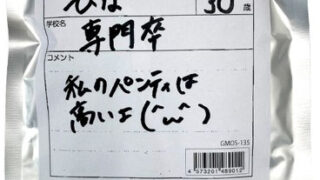 ひな
30歳
学校名
専門卒
コメント
私のパンティは
高いよ(^ω^)
GMOS-135
4 573201 489012